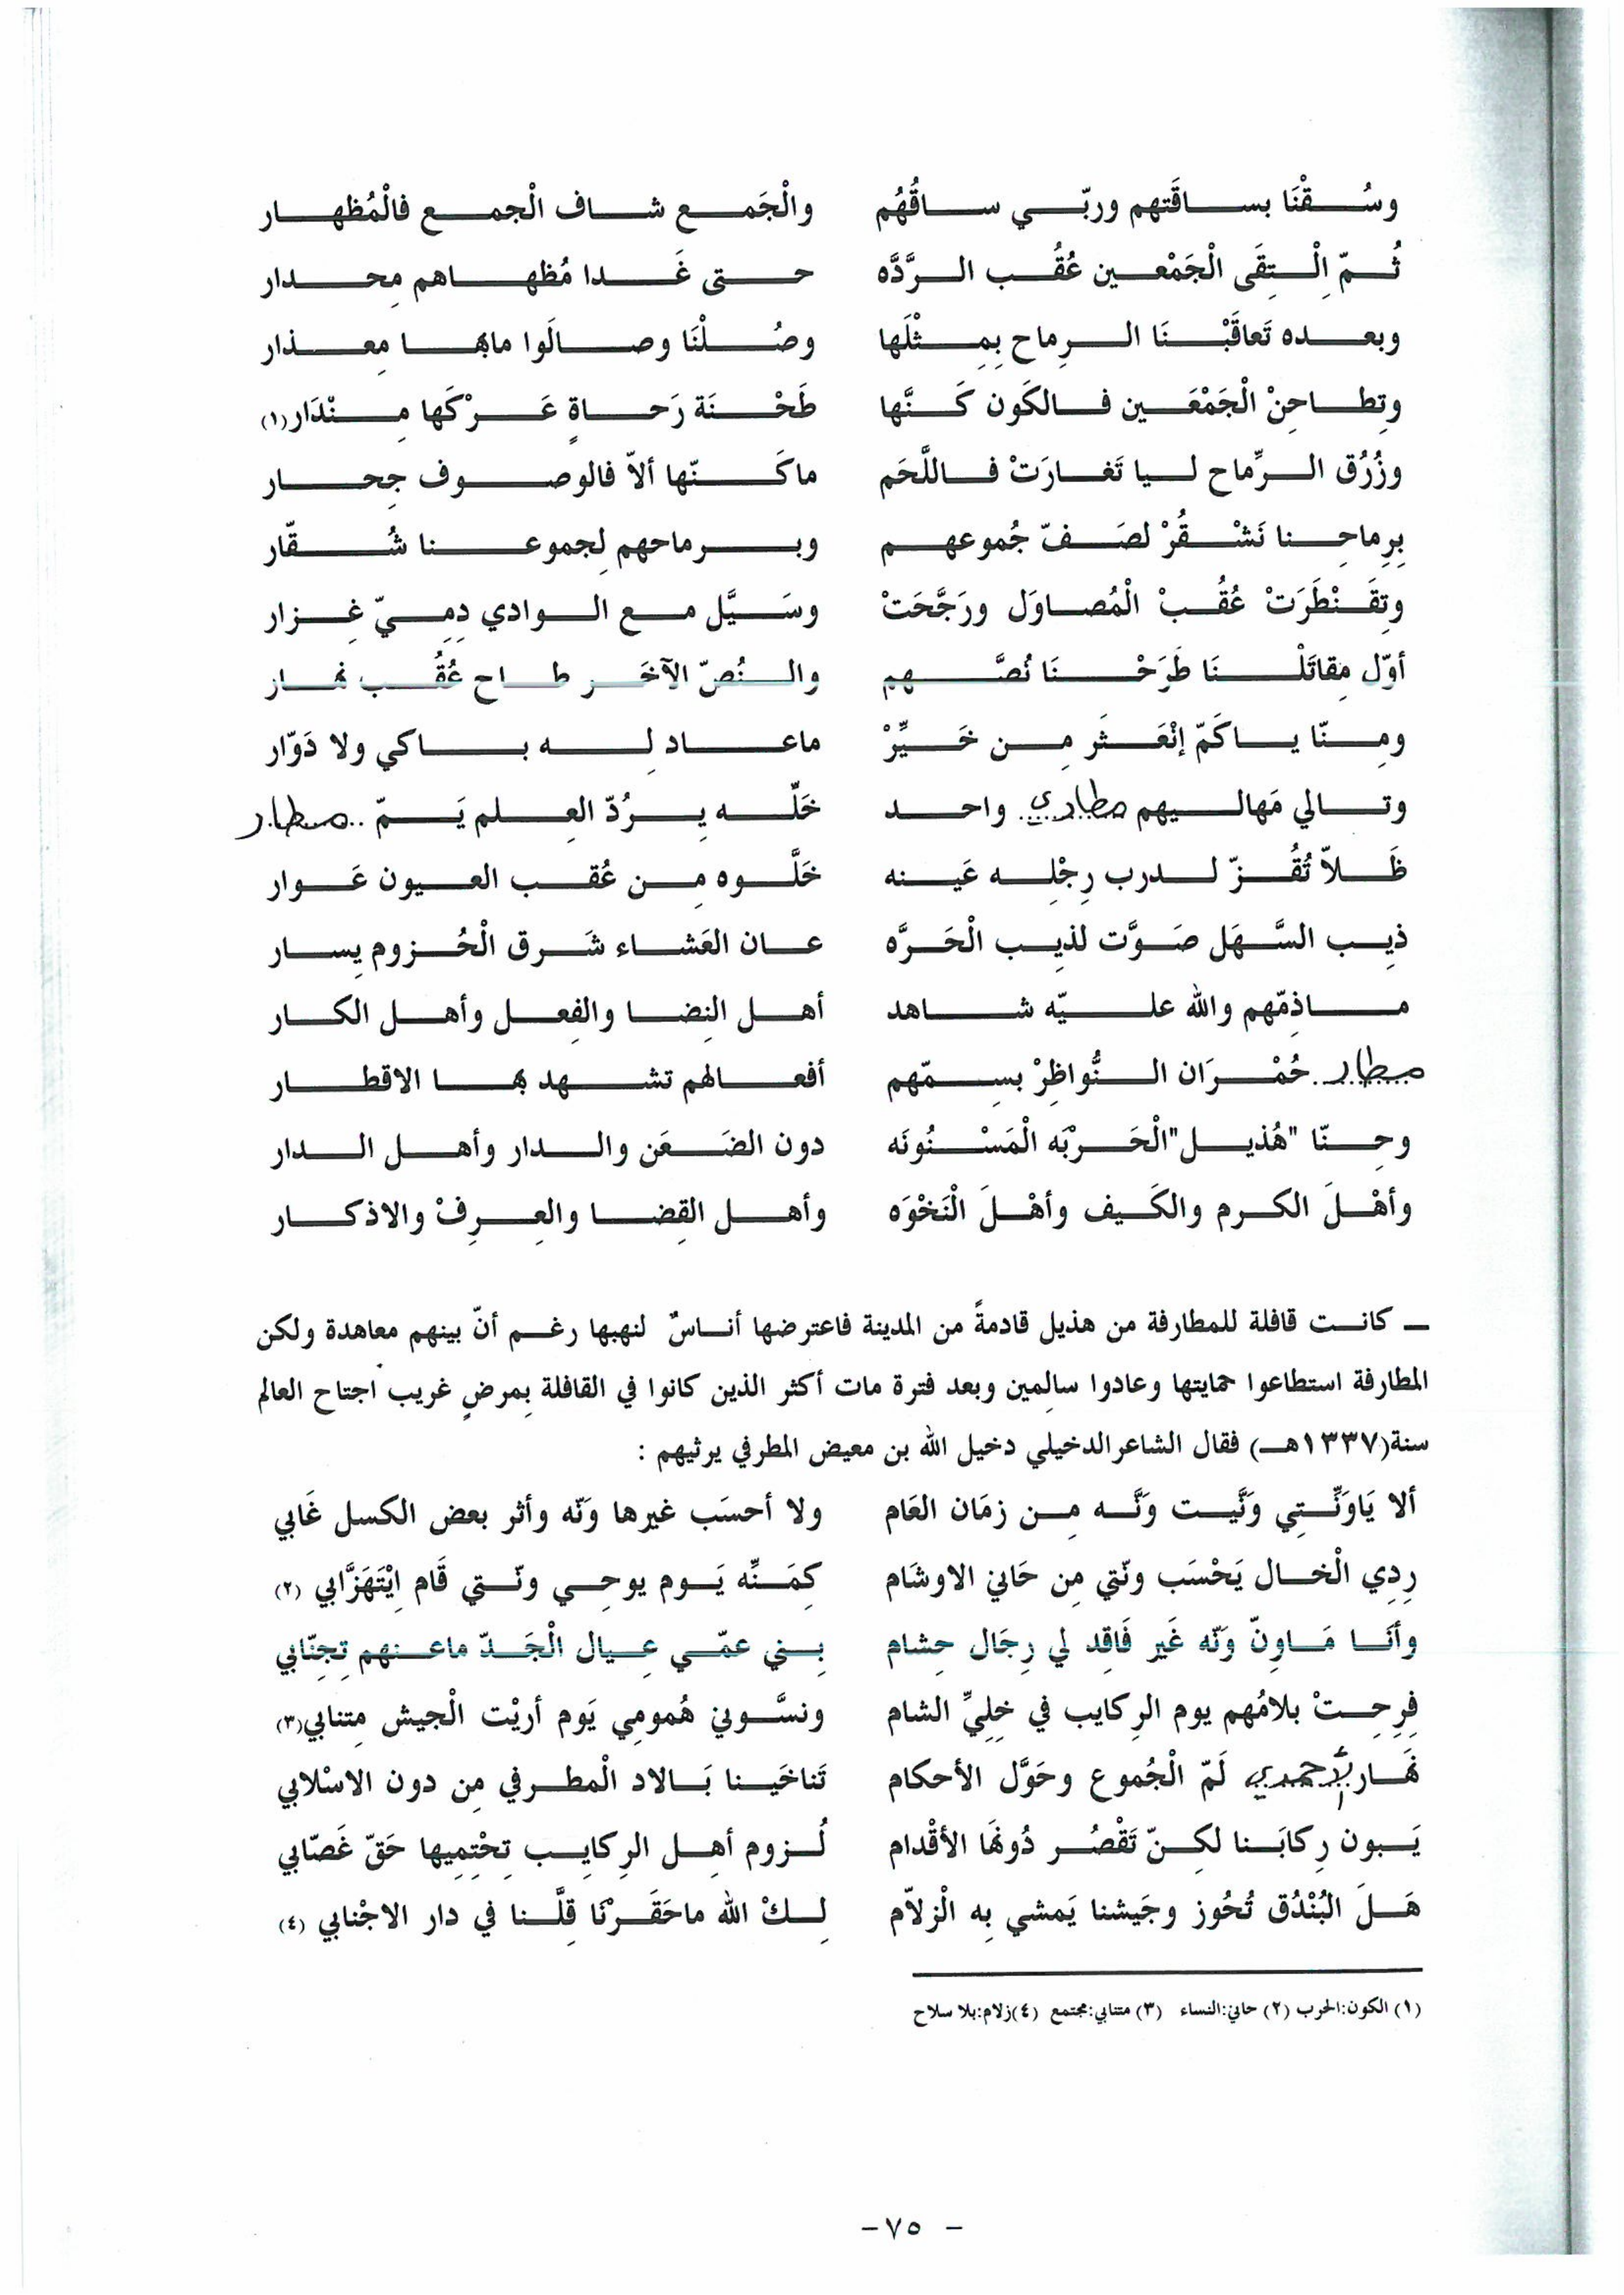 وسُقْنَا بساقَتهم وربّي ساقُهُم والْجَمع شاف الْجمع فالْمُظهار
ثُمّ اِلْتِقَى الْجَمْعين عُقُب الرَّدَّه حتى غَدا مُظهاهم مِحدار
وبعده تَعاقَبْنَا الرِماح بِمِثْلَها وصُلْنَا وصالَوا مابها مِعذار
وتِطاحِنْ الْجَمْعَين فالكَون كَنَّها طَحْنَة رَحاةٍ عَرْكَها مِنْدَار (١)
وزُرْق الرِّماح ليا تَغارَتْ فاللَّحَم ماكَنّها ألاّ فالوصوف جِحار
بِرِماحِنا نَشْقُرْ لصَفّ جُموعهم وبرماحهم لِجموعنا شُقّار
وتِقَنْطَرَتْ عُقُبْ الْمُصاوَل ورَجَّحَتْ وسَيَّل مع الوادي دِمِيّ غِزار
أوّل مِقاتَلْنَا طَرَحْنَا نُصَّهم والنُصّ الآخَر طاح عُقُب نهار
ومِنّا ياكَمّ إنْعَثَر مِن خَيِّرْ ماعاد لِه باكي ولا دَوّار
وتالي مَهاليهم مطاري واحد خَلّه يرُدّ العِلم يَمّ .. مطار
ظَلاّ تُقُزّ لدرب رِجْلِه عَينه خَلَّوه مِن عُقب العيون عَوار
ذيِب السَّهَل صَوَّت لذيِب الْحَرَّه عان العَشاء شَرق الْحُزوم يِسار
ماذِمّهم والله عليّه شاهد أهل النِضا والفِعل وأهل الكار
مطار .. حُمْرَان النُّواظِرْ بسِمّهم أفعالهم تشهد بها الاقطار
وحِنّا "هُذيل" الْحَرْبَه الْمَسْنُونَه دون الضَعَن والدار وأهل الدار
وأهْلَ الكرم والكَيف وأهْلَ الْنَخْوَه وأهل القِضا والعِرِفْ والاذكار
ــ كانت قافلة للمطارفة من هذيل قادمةً من المدينة فاعترضها أناسٌ لنهبها رغم أنّ بينهم معاهدة ولكن
المطارفة استطاعوا حمايتها وعادوا سالِمين وبعد فترة مات أكثر الذين كانوا في القافلة بِمرضٍ غريب اجتاح العالم
سنة(١٣٣٧هـ) فقال الشاعرالدخيلي دخيل الله بن معيض المطرفي يرثيهم :
ألا يَاوَنِّتي وَنَّيت وَنَّه مِن زمَان العَام ولا أحسَب غيرها وَنّه وأثر بعض الكسل غَابي
رِدِي الْخال يَحْسَب ونّتي مِن حَانيِ الاوشَام كِمَنِّه يَوم يوحِي ونّتي قَام اِيْتَهَزَّابي (٢)
وأنَا مَاوِنّ وَنّه غَير فَاقِد لي رِجَال حِشام بِني عمّي عِيال الْجَدّ ماعنهم تِجِنّابي
فِرِحِتْ بلامُهم يوم الرِكايب في خلِيِّ الشام ونسَّونيِ هُمومِي يَوم أرَيْت الْجيش مِتنابي(٣)
نَهار الأحمدي لَمّ الْجُموع وحَوَّل الأحكام تَناخَينا بَالاد الْمطرفي مِن دون الاسْلابي
يَبون رِكابَنا لكِنّ تَقْصُر دُونَها الأقْدام لُزوم أهِل الرِكايِب تِحْتِمِيها حَقّ غَصّابي
هَلَ البُنْدُق تُحُوز وجَيشنا يَمشي بِه الْزلاّم لِكْ الله ماحَقَرْنَا قِلَّنا في دار الاجْنابي (٤)
(١) الكون:الحرب (٢) حاني:النساء (٣) متنابي:مجتمع (٤)زلام:بلا سلاح
- ٧٥-